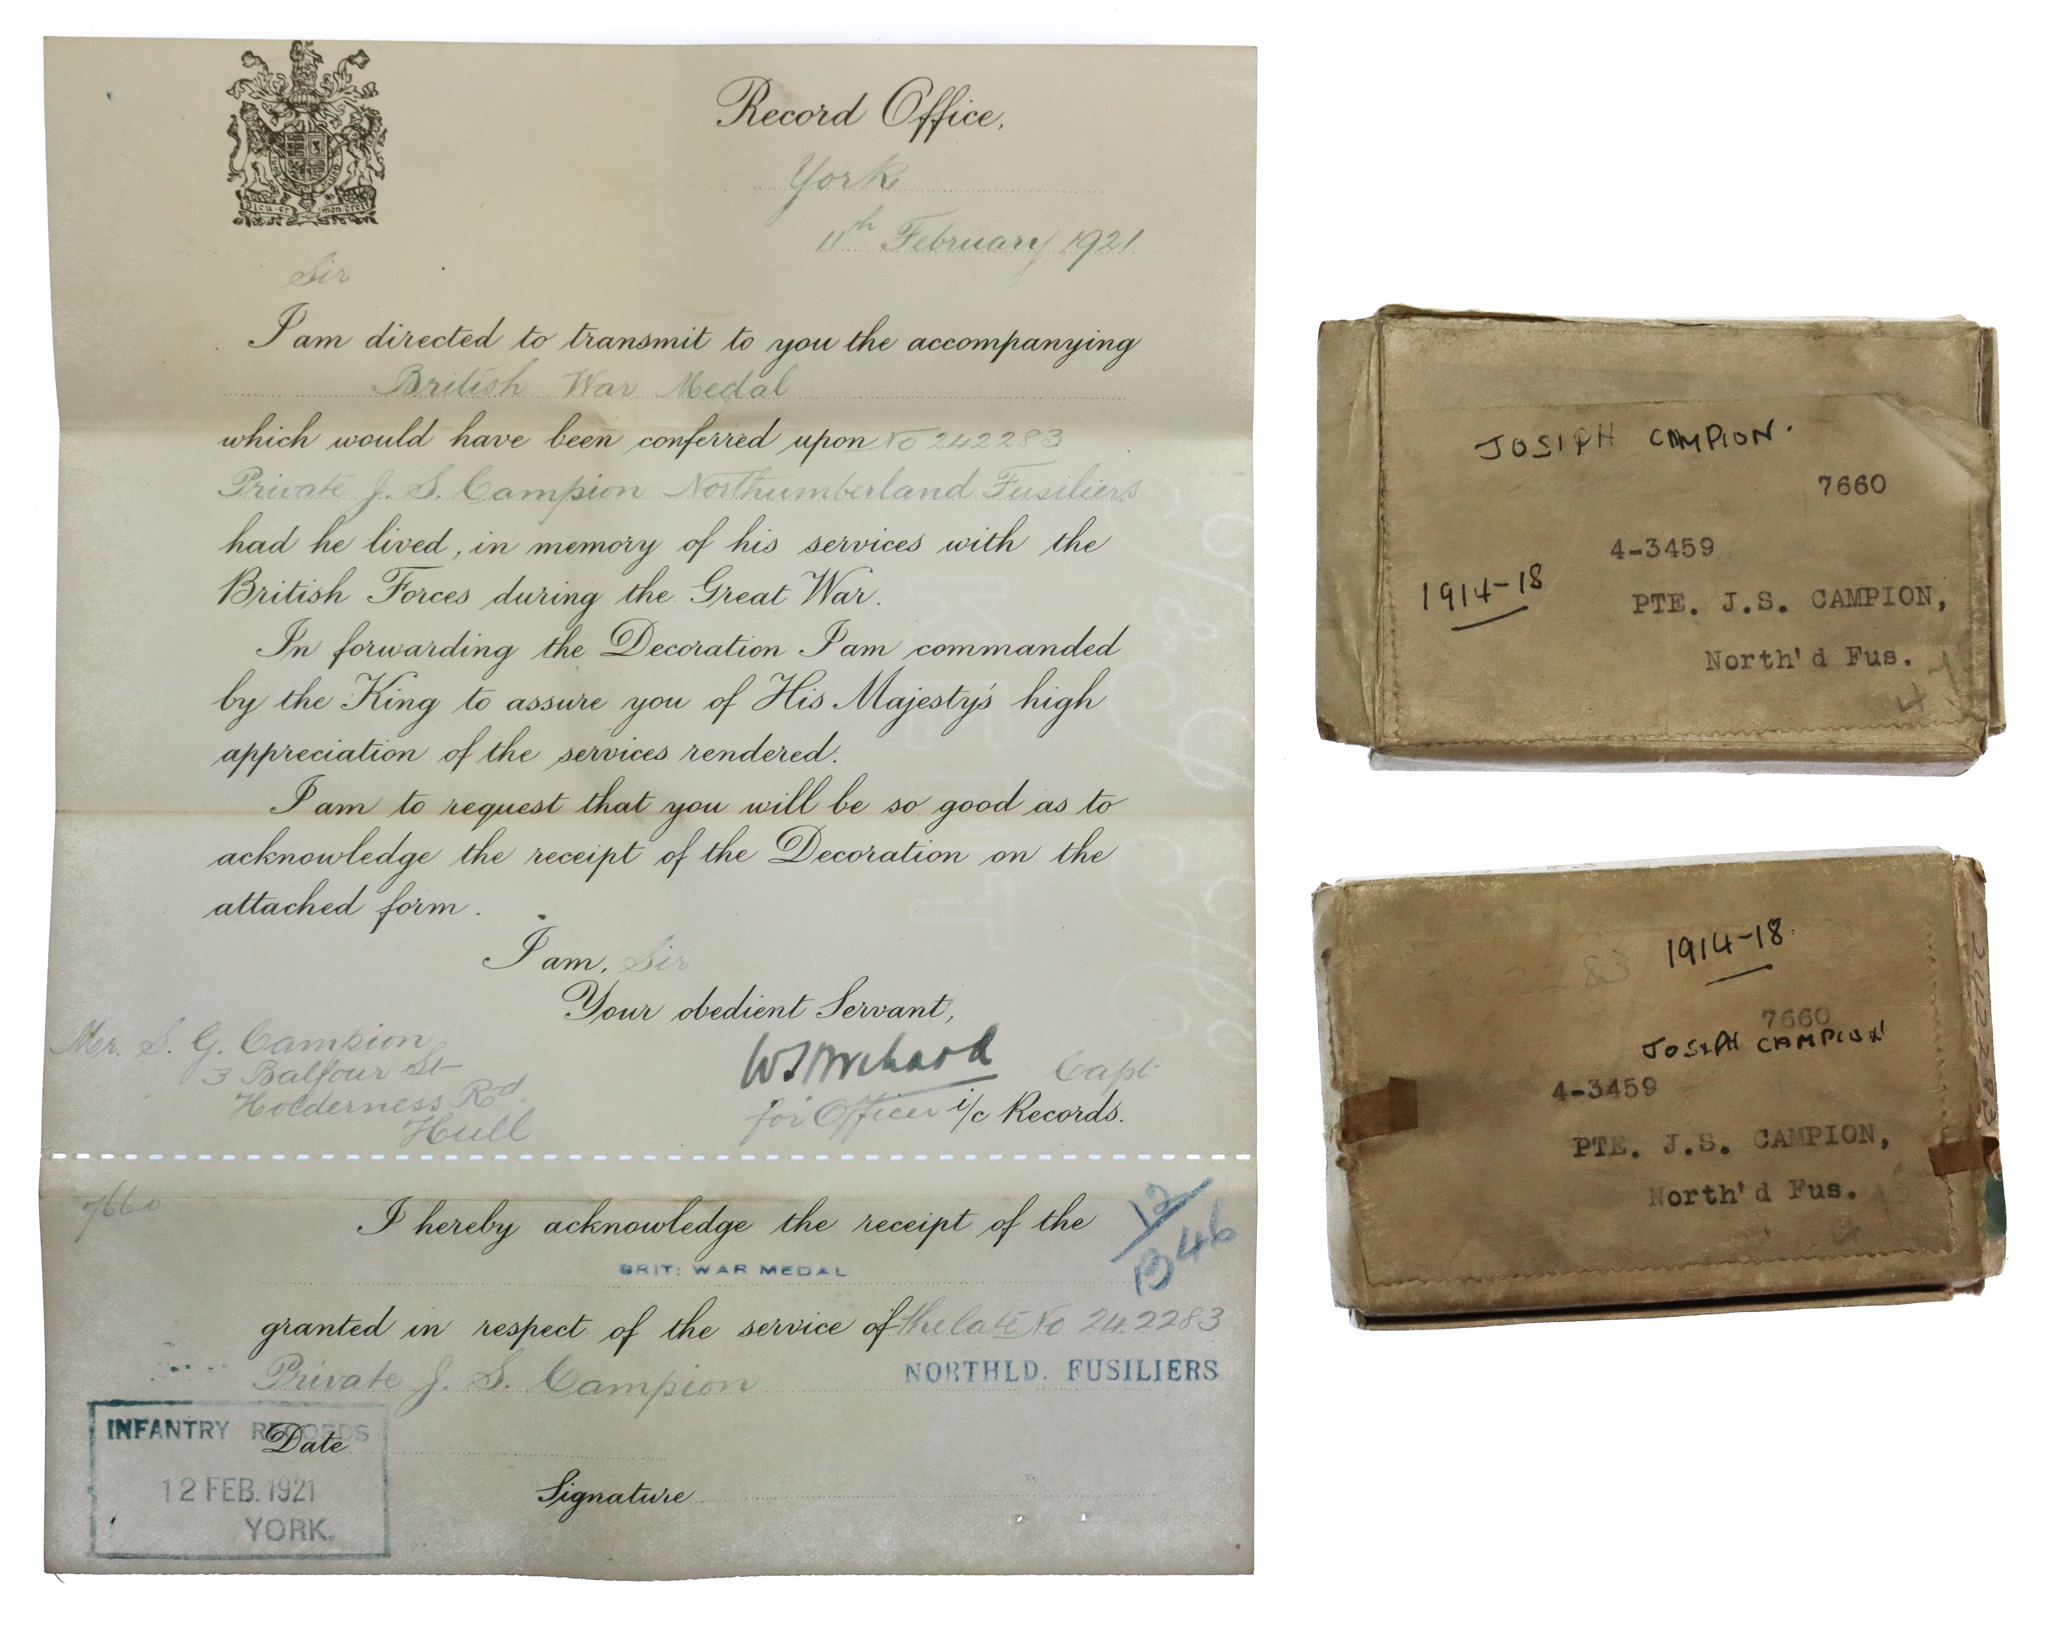 DIEU ET MON DROIT
Record Office,
York
11th February 1921.
Sir
I am directed to transmit to you the accompanying
British War Medal
which would have been conferred upon No 242283
Private J. S. Campion Northumberland Fusiliers
had he lived, in memory of his services with the
British Forces during the Great War.
In forwarding the Decoration I am commanded
by the King to assure you of His Majesty's high
appreciation of the services rendered.
I am to request that you will be so good as to
acknowledge the receipt of the Decoration on the
attached form.
I am, Sir
Your obedient Servant,
Mr. S. G. Campion
3 Balfour St
Holderness Rd.
Hull
Capt
for Officer i/c Records.
7660
I hereby acknowledge the receipt of the
BRIT: WAR MEDAL
granted in respect of the service of the late No 242283
Private J. S. Campion NORTHLD. FUSILIERS
INFANTRY RECORDS
12 FEB. 1921
YORK.
Date
Signature
JOSEPH CAMPION.
7660
4-3459
1914-18
PTE. J.S. CAMPION,
North'd Fus.
1914-18.
7660
JOSEPH CAMPION
4-3459
PTE. J.S. CAMPION,
North'd Fus.
242283